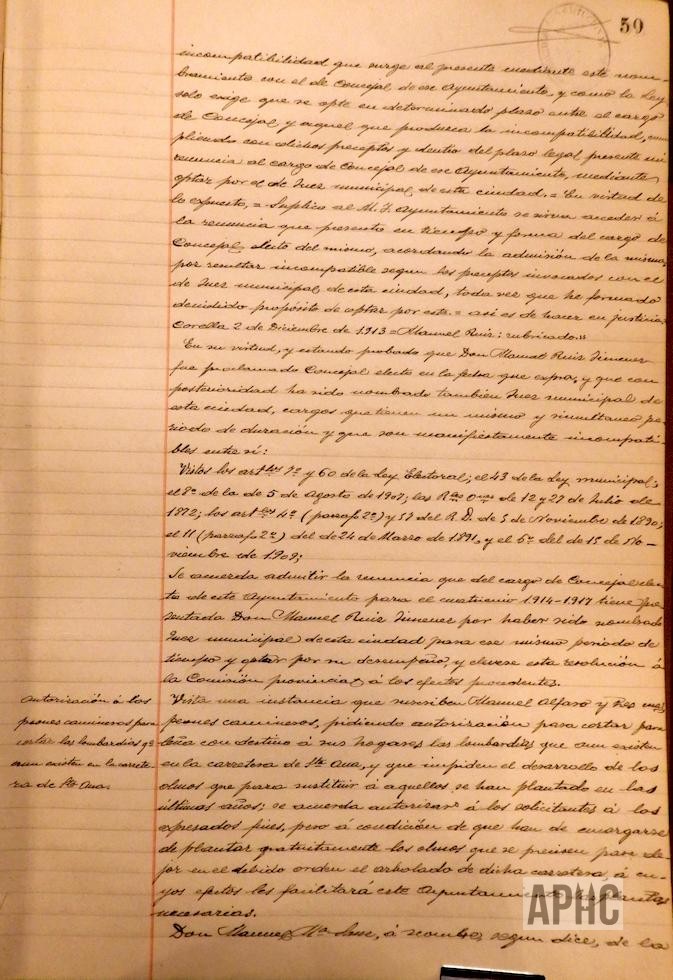 50
incompatibilidad que surge al presente mediante este nom-
bramiento con el de Concejal de ese Ayuntamiento, y como la Ley
solo exige que se opte en determinado plazo entre el cargo
de Concejal y aquel que produzca la incompatibilidad, cum
pliendo con dichos preceptos y dentro del plazo legal presente mi
renuncia al cargo de Concejal de ese Ayuntamiento, mediante
optar por el de Juez municipal de esta ciudad. = En virtud de
lo expuesto, = Suplico al M. I. Ayuntamiento se sirva acceder á
la renuncia que presento en tiempo y forma del cargo de
Concejal electo del mismo, acordando la admisión de la misma,
por resultar incompatible segun los preceptos invocados con el
de Juez municipal de esta ciudad, toda vez que he formado
decidido propósito de optar por este. = asi es de hacer en justicia.
Corella 2 de Diciembre de 1913 = Manuel Ruiz: rubricado."
En su virtud, y estando probado que Don Manuel Ruiz Jimenez
fue proclamado Concejal electo en la fecha que expresa, y que con
posterioridad ha sido nombrado tambien Juez municipal de
esta ciudad, cargos que tienen un mismo y simultaneo pe-
riodo de duración y que son manifiestamente incompati-
bles entre sí:
Vistos los artlos 7º y 60 de la Ley Electoral; el 43 de la Ley municipal;
el 8º de la de 5 de Agosto de 1907; las Rles Ones de 12 y 27 de Julio de
1872; los artlos 4º (parraf. 2º) y 57 del R. D. de 5 de Noviembre de 1890;
el 11 (parraf. 2º) del de 24 de Marzo de 1891, y el 6º del de 15 de No-
viembre de 1909;
Se acuerda admitir la renuncia que del cargo de Concejal elec-
to de este Ayuntamiento para el cuatrienio 1914-1917 tiene pre
sentada Don Manuel Ruiz Jimenez por haber sido nombrado
Juez municipal de esta ciudad para ese mismo periodo de
tiempo y optar por su desempeño, y elevese esta resolución á
la Comisión provincial á los efectos procedentes.
autorización á los
peones camineros para
cortar los lombardios qe
aun existen en la carrete
ra de Sta Ana.
Vista una instancia que suscriben Manuel Alfaro y
peones camineros, pidiendo autorización para cortar para
leña con destino á sus hogares los lombardios que aun existen
en la carretera de Sta Ana, y que impiden el desarrollo de los
olmos que para sustituir á aquellos se han plantado en los
últimos años; se acuerda autorizar á los solicitantes á los
expresados fines, pero á condición de que han de encargarse
de plantar gratuitamente los olmos que se precisen para de-
jar en el debido orden el arbolado de dicha carretera, á cu-
yos efectos les facilitará este Ayuntamiento las plantas
necesarias.
Don Manuel Mª á nombre, segun dice, de la
APHC